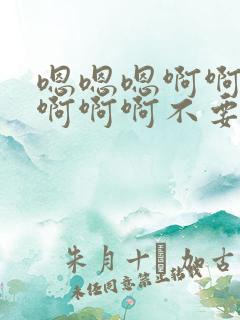 嗯嗯嗯啊啊
啊啊啊不要
朱月十 加古
未经同意禁止转载